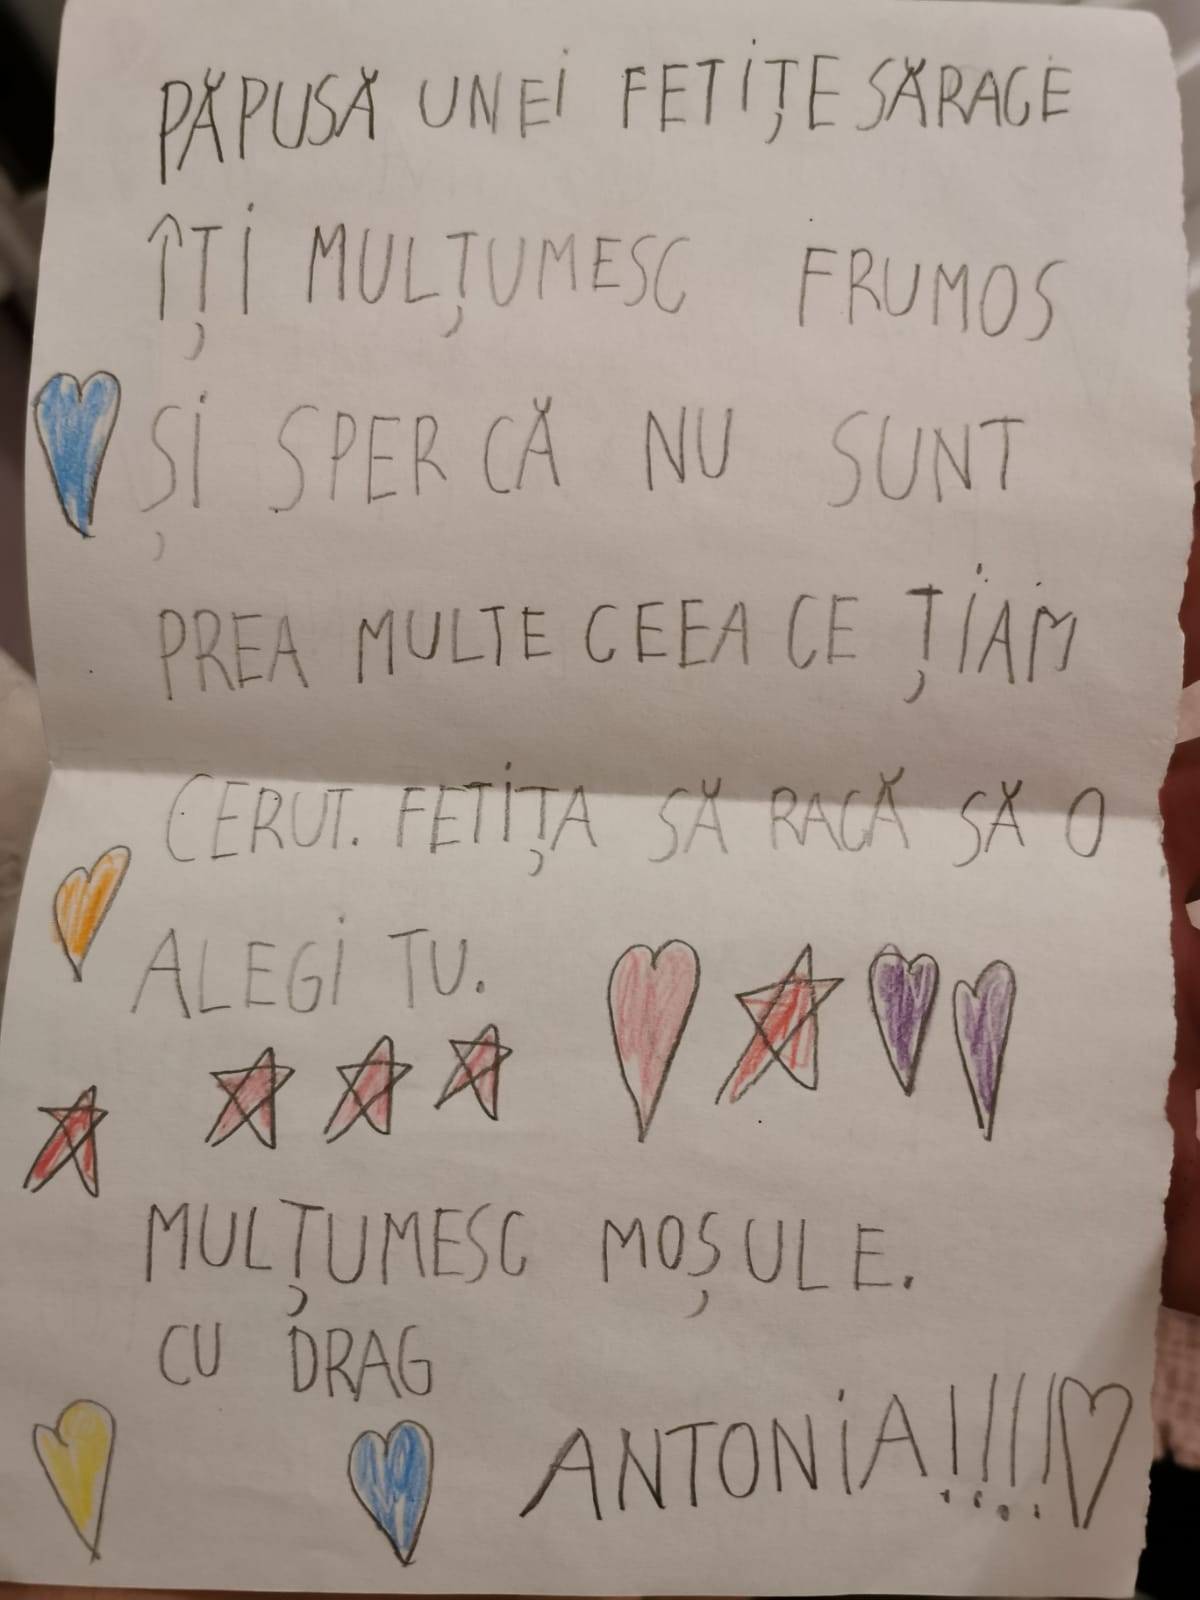 PĂPUSĂ UNEI FETIȚE SĂRACE
ÎȚI MULȚUMESC FRUMOS
ȘI SPER CĂ NU SUNT
PREA MULTE CEEA CE ȚIAM
CERUT. FETIȚA SĂ RACĂ SĂ O
ALEGI TU.
MULȚUMESC MOȘULE.
CU DRAG
ANTONIA!!!!